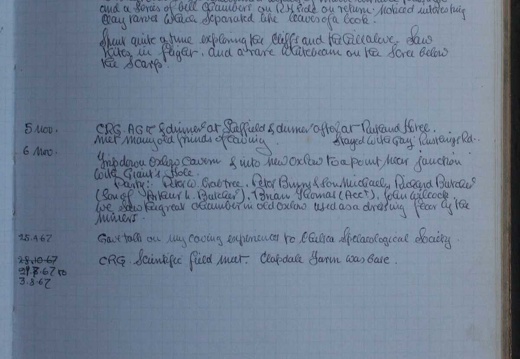 and a series of bell chambers on R.H. side on return. Noticed interesting
clay which separated like leaves of a book.
Spent quite a time exploring the cliffs and the hillside. Saw
in flight. and a rare whitebeam on the scree below
the scarp.
5 Nov. CRG AGM & dinner at Sheffield & dinner after at Rutland Hotel.
Met many old friends of caving. Stayed with Gay, Rustlings Rd.
6 Nov.
Trip down Oxlow Cavern & into new Oxlow to a point near junction
with Giant's Hole.
Party: Peter W. Crabtree, Peter Burgu & son Michael, Richard Butcher
(Son of Arthur L. Butcher), Brian Thomas (Acc?), John Wilcock
We saw the great chamber in old Oxlow used as a dressing floor by the
miners.
25.4.67 Gave talk on my caving experiences to Chelsea Speleological Society
28.10.67 CRG Scientific field meet. Clapdale Farm was base.
29.7.67 to
3.8.67